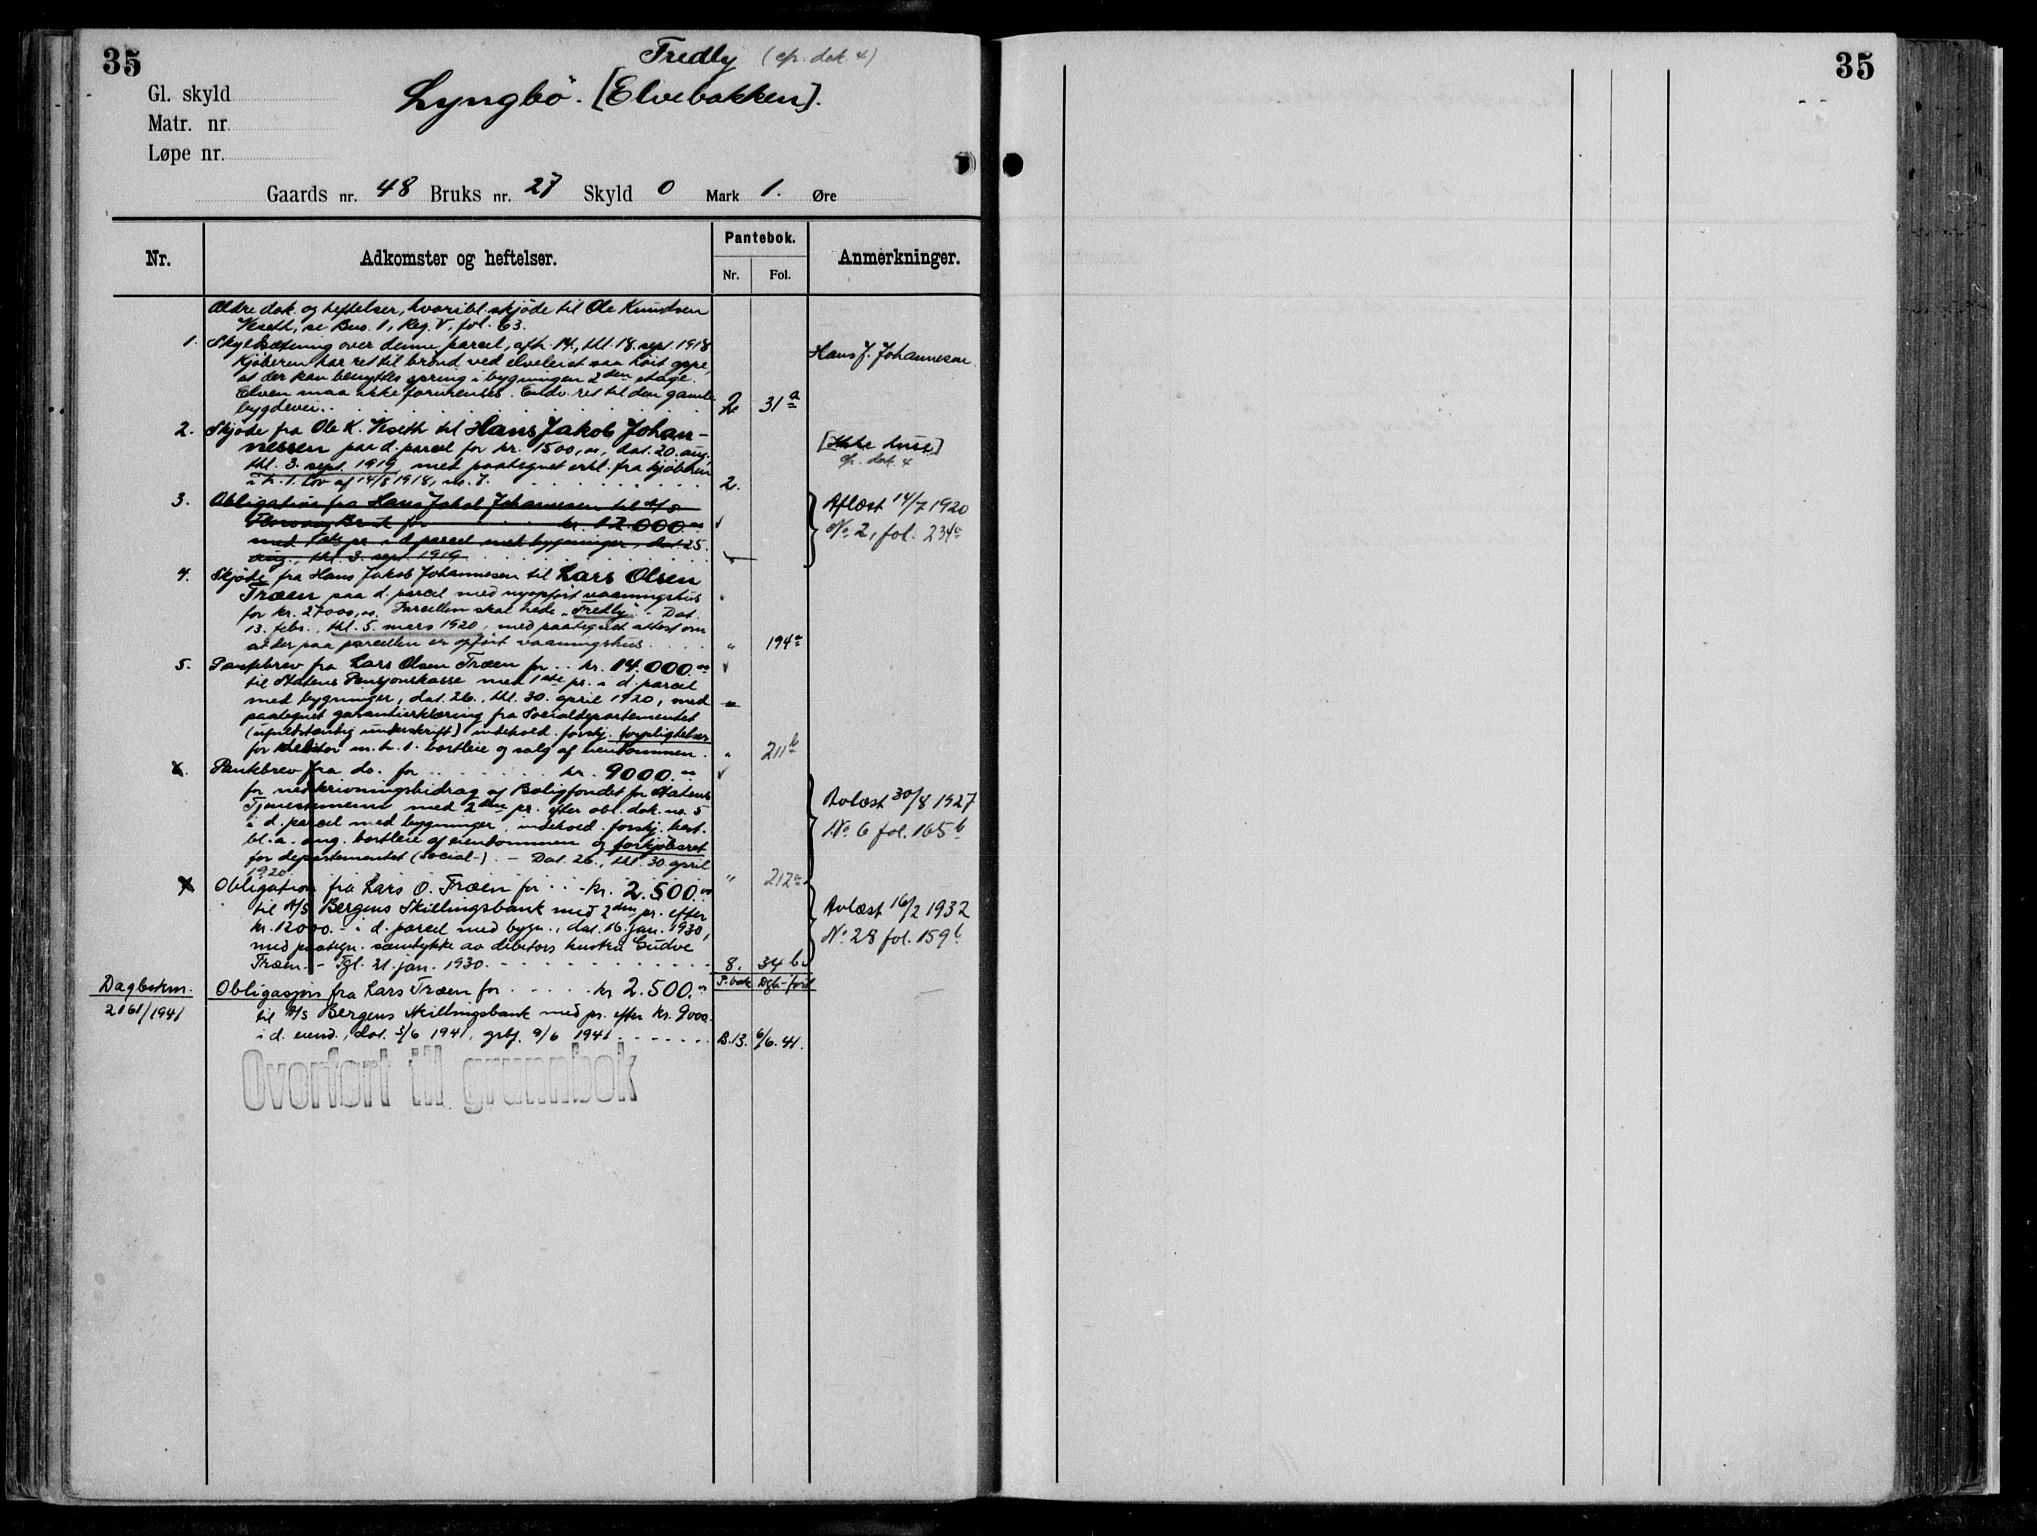 35
Fredly (cfr. dok. 4)
Gl. skyld
Lyngbö. [Elvebakken].
Matr. nr.
Løpe nr.
Gaards nr. 48 Bruks nr. 27 Skyld 0 Mark 1. Øre
Nr. Adkomster og heftelser. Pantebok. Anmerkninger.
Nr. Fol.
Ældre dok. og heftelser, hvoribl. skjöde til Ole Knudsen
Veseth, se Bus. 1, Reg. V, fol. 63.
1. Skyldsætning over denne parcel, afh. 14., thl. 18. sept. 1918 Hans J. Johannesen
Kjöberen har ret til brönd ved elveleiet saa höit oppe,
at der kan benyttes spring i bygningen 2den etage.
Elven maa ikke forurenses. Endv. ret til den gamle
bygdevei. 2 31a
2. Skjöde fra Ole K. Veseth til Hans Jakob Johan-
nessen paa d. parcel for kr. 1500,00, dat. 20. aug., [Ikke huse]
thl. 3. sept. 1919, med paategnet erkl. fra kjöberen cfr. dok. 4
i h. t. lov af 14/8 1918, no. 7. 2.
3. Obligation fra Hans Jakob Johannesen til A/S Aflæst 14/7 1920
Bruk for kr. 12000.00 No. 2, fol. 234a
med 1ste pr. i d. parcel med bygninger, dat. 25.
aug., thl. 3. sept. 1919
4. Skjöde fra Hans Jakob Johannesen til Lars Olsen
Træen paa d. parcel med nyopfört vaaningshus
for kr. 27000,00. Parcellen skal hede "Fredly". - Dat.
13. febr., thl. 5. mars 1920, med paategnet attest om
at der paa parcellen er opfört vaaningshus. " 194a
5. Pantebrev fra Lars Olsen Træen for .. kr. 14.000.00
til Statens Pensjonskasse med 1ste pr. i d. parcel
med bygninger, dat. 26., thl. 30. april 1920, med
paategnet garantierklæring fra Socialdepartementet
(ufuldstændig underskrift) indehold. forskj. forpligtelser
for debitor m. h. t. bortleie og salg af eiendommen. " 211b
Pantebrev fra do. for kr. 9000.00
for nedskrivningsbidrag af Boligfondet for Statens Avlæst 30/8 1927
Tjenestemenn med 2den pr. efter obl. dok. no. 5 No. 6 fol. 165b
i d. parcel med bygninger, indehold. forskj. best.
bl. a. ang. bortleie af eiendommen og forkjöbsret
for departementet (Social-). - Dat. 26., thl. 30. april
1920. " 212a
Obligation fra Lars O. Træen for . . . kr. 2.500.00
til A/S Bergens Skillingsbank med 2den pr. efter Avlæst 16/2 1932
kr. 12000.- i d. parcel med bygn., dat. 16. jan. 1930, No. 28 fol. 159b
med paategn. samtykke av debitors hustru Gudve
Træen. - Tgl. 21. jan. 1930. 8. 34b
Dagboknr. P. bok Dgb.-förl
2161/1941 Obligasjon fra Lars Træen for kr 2.500.00
til A/S Bergens Skillingsbank med pr. efter kr. 9000
i d. eiend., dat. 5/6 1941, grbf. 9/6 1941 B.13. 6/6.41.
Overført til grunnbok
35